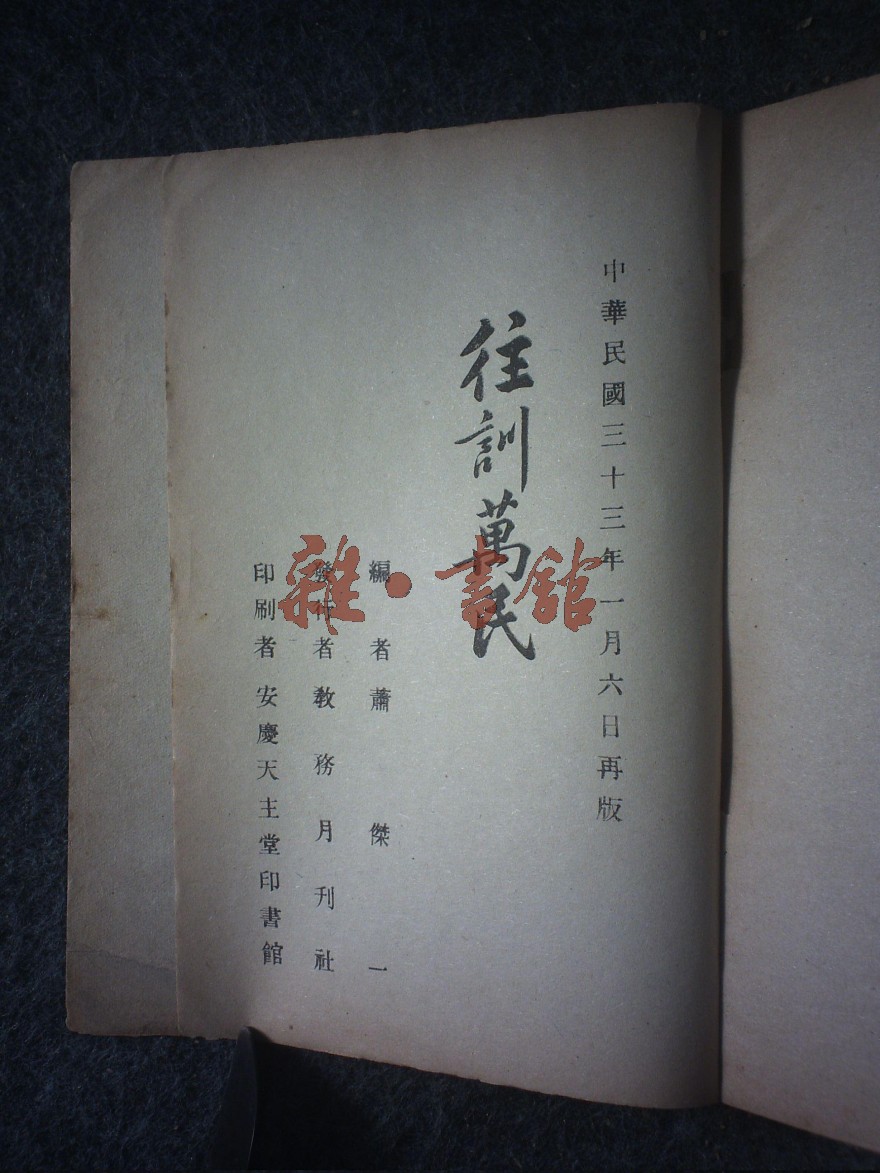 中華民國三十三年一月六日再版
往訓萬民
編者蕭傑一
發行者敎務月刊社
印刷者安慶天主堂印書館
雜·書館